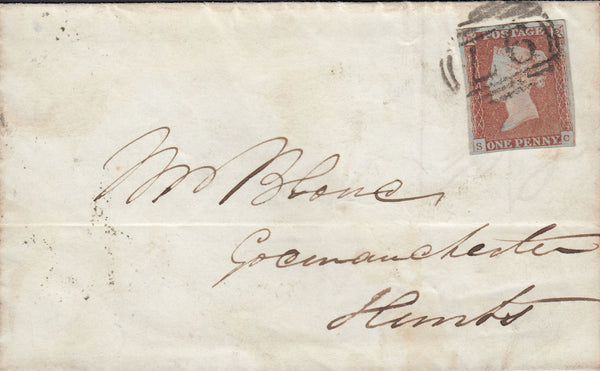 POSTAGE
S C
ONE PENNY
Mr Blonc
Gocmanchester
Hunts